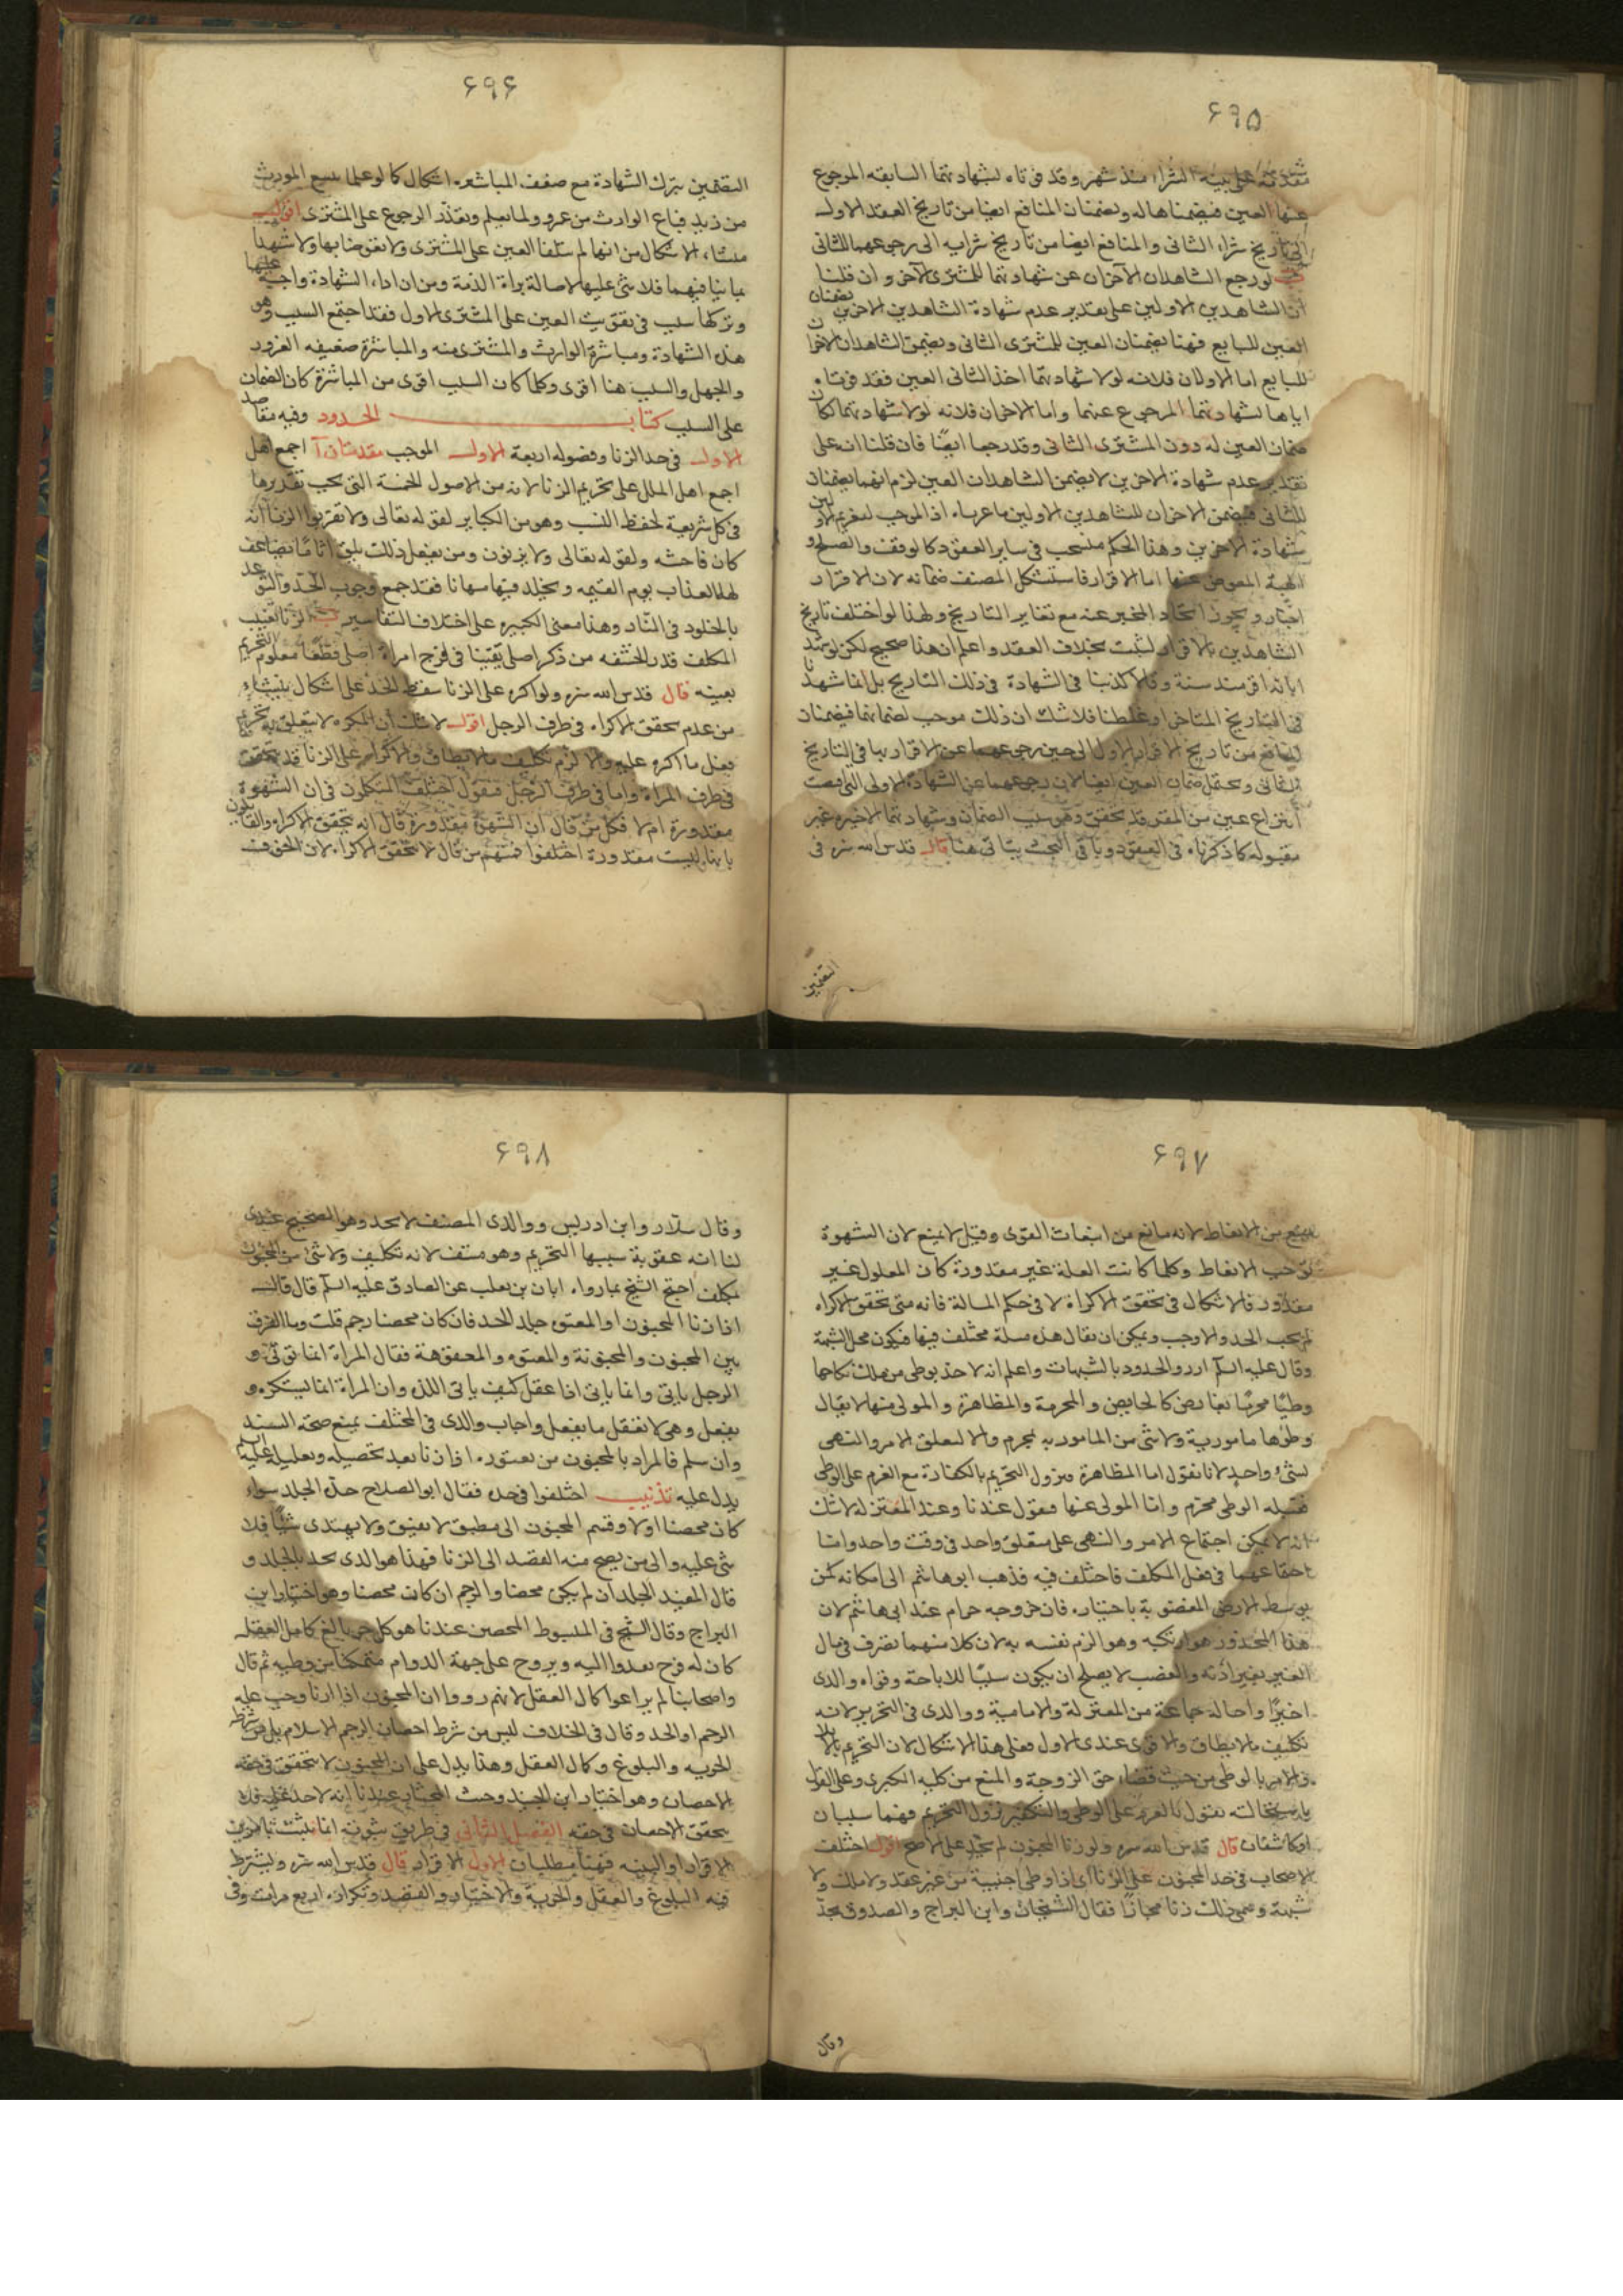 ۶۹۵
مقدمة على بينة الشراء منذ شهر وقد فوتاه بشهادتهما السابقه المرجوع
عنها العين فيضمناها له ويضمنان المنافع ايضا من تاريخ العقد الاول
الى تاريخ شراء الثانى والمنافع ايضا من تاريخ شرايه الى رجوعهما للثانى
لو رجع الشاهدان الآخران عن شهادتهما للمشترى الآخر و ان قلنا
ان الشاهدين الاولين على تقدير عدم شهادة الشاهدين الاخرين يضمنان
العين للبايع فهنا يضمنان العين للمشترى الثانى ويضمن الشاهدان الاخران
للبايع اما الاولان فلانه لولا شهادتهما اخذ الثانى العين فقد فوتاه
اياها بشهادتهما المرجوع عنها واما الاخران فلانه لولا شهادتهما لكان
ضمان العين له دون المشترى الثانى وقد رجعا ايضًا فان قلنا انه على
تقدير عدم شهادة الاخرين لا يضمن الشاهدان العين لزم انهما يضمنان
للثانى فيضمن الاخران للشاهدين الاولين ما غرماه اذ الموجب لتغريم الاولين
شهادة الاخرين وهذا الحكم منسحب فى ساير العقود كالوقف والصلح و
الهبة المعوض عنها اما الاقرار فاستشكل المصنف ضمانه لان الاقرار
اخبار ويجوز اتحاد المخبر عنه مع تغاير التاريخ ولهذا لو اختلف تاريخ
الشاهدين بالاقرار لثبت بخلاف العقد واعلم ان هذا صحيح لكن لو شهد
انه اقر منذ سنة وقالا كذبنا فى الشهادة فى ذلك التاريخ بل انما شهدنا
فى التاريخ المتاخر او غلطنا فلا شك ان ذلك موجب لضمانهما فيضمنان
المنافع من تاريخ الاقرار الاول الى حين رجوعهما عن الاقرار بها فى التاريخ
الثانى ويحتمل ضمان العين ايضا لان رجوعهما عن الشهادة الاولى التى
انتزاع عين من المقر قد تحقق وهو سبب الضمان وشهادتهما الاخيره غير
مقبوله كما ذكرناه فى العقود وباقى البحث يتاتى هنا قال قدس الله سره فى
۶۹۶
التضمين بترك الشهادة مع ضعف المباشره اشكال كما لو علما ببيع المورث
من زيد فباع الوارث من عمرو ولما يعلم وتعذر الرجوع على المشترى اقول
منشاء الاشكال من انهما لم يتلفا العين على المشترى ولا نقوضا بها ولا شهدا
بما ينافيهما فلا شئ عليهما لاصالة براة الذمة ومن ان اداء الشهادة واجب عليهما
وتركها سبب فى تفويت العين على المشترى الاول فقد اجتمع السبب وهو
هذه الشهادة ومباشرة الوارث والمشترى منه والمباشرة ضعيفه الغرور
والجهل والسبب هنا اقوى وكلما كان السبب اقوى من المباشرة كان الضمان
على السبب كتاب الحدود وفيه مقاصد
الاول فى حد الزنا وفصوله اربعة الاول الموجب مقدمتان آ اجمع اهل
اجمع اهل الملل على تحريم الزنا لانه من الاصول الخمسة التى يجب تقديرها
فى كل شريعة لحفظ النسب وهو من الكباير لقوله تعالى ولا تقربوا الزنا انه
كان فاحشه ولقوله تعالى ولا يزنون ومن يفعل ذلك يلق اثامًا يضاعف
له العذاب يوم القيمه ويخلد فيه مهانا فقد جمع وجوب الحد والتوعد
بالخلود فى النار وهذا معنى الكبيره على اختلاف التفاسير ب الزنا تغييب
المكلف قدر الحشفه من ذكر اصلى يقينا فى فرج امراة اصلى قطعًا معلوم التحريم
بعينه قال قدس الله سره ولو اكره على الزنا سقط الحد على اشكال ينشاء
من عدم تحقق الاكراه فى طرف الرجل اقول لا شك ان المكره لا يتعلق به تحريم
بفعل ما اكره عليه والا لزم تكليف ما لا يطاق والاكراه على الزنا قد يتحقق
فى طرف المراة واما فى طرف الرجل فنقول اختلف المتكلمون فى ان الشهوة
مقدورة ام لا فكل من قال ان الشهوة مقدورة قال انه يتحقق الاكراه والقايلون
بانها ليست مقدورة اختلفوا فمنهم من قال لا يتحقق الاكراه لان الخوف
التضمين
۶۹۷
يمنع من الانعاظ لانه مانع من انبعاث القوى وقيل لا يمنع لان الشهوة
توجب الانعاظ وكلما كانت العلة غير مقدورة كان المعلول غير
مقدور فالاشكال فى تحقق الاكراه لا فى حكم المسالة فانه متى تحقق الاكراه
لم يجب الحد والا وجب ويمكن ان يقال هذه مسلة مختلف فيها فيكون محل الشبهة
وقال عليه السلم ادرؤ الحدود بالشبهات واعلم انه لا حد بوطى من ملك نكاحها
وطيًا محرمًا بعارض كالحايض والمحرمة والمظاهرة والمولى منها لا يقال
وطؤها مامور به ولا شئ من المامور به بمحرم والا لتعلق الامر والنهى
بشئ واحد لانا نقول اما المظاهرة فيزول التحريم بالكفارة مع العزم على الوطى
فقبله الوطى محرم واما المولى عنها فنقول عندنا وعند المعتزله لا شك
انه لا يمكن اجتماع الامر والنهى على متعلق واحد فى وقت واحد واما
اجتماعهما فى فعل المكلف فاختلف فيه فذهب ابو هاشم الى امكانه كمن
توسط الارض المغصوبة باختياره فان خروجه حرام عند ابى هاشم لان
هذا المحذور هو ارتكبه وهو الزم نفسه به لان كلا منهما تصرف فى مال
الغير بغير اذنه والغصب لا يصلح ان يكون سببًا للاباحة وقواه والدى
اخيرًا واحاله جماعة من المعتزلة والامامية ووالدى فى التحرير لانه
تكليف بما لا يطاق والاقوى عندى الاول فعلى هذا الاشكال لان التحريم بالايلا
والامر بالوطى من حيث قضاء حق الزوجة والمنع من كليه الكبرى وعلى القول
باستحالته نقول بالعزم على الوطى والتكفير يزول التحريم فهما سببان
او كاشفان قال قدس الله سره ولو زنا المجنون لم يحد على الاصح اقول اختلف
الاصحاب فى حد المجنون على الزنا اى اذا وطى اجنبية من غير عقد ولا ملك ولا
شبهة وسمى ذلك زنا مجازًا فقال الشيخان وابن البراج والصدوق يحد
وقال
۶۹۸
وقال سلار وابن ادريس ووالدى المصنف لا يحد وهو الصحيح عندى
لنا انه عقوبة سببها التحريم وهو منتف لانه تكليف ولا شئ من المجنون
بمكلف احتج الشيخ بما رواه ابان بن تغلب عن الصادق عليه السلم قال قال
اذا زنا المجنون او المعتوه جلد الحد فان كان محصنا رجم قلت وما الفرق
بين المجنون والمجنونة والمعتوه والمعتوهة فقال المراة انما تؤتى و
الرجل ياتى وانما ياتى اذا عقل كيف ياتى اللذة وان المراة انما تستكره و
يفعل بها وهى لا تعقل ما يفعل واجاب والدى فى المختلف بمنع صحة السند
وان سلم فالمراد بالمجنون من يعتوره اذا زنا بعد تحصيله وتعليله عليه السلم
يدل عليه تذنيب اختلفوا فى حده فقال ابو الصلاح حده الجلد سواء
كان محصنا او لا وقسم المجنون الى مطبق لا يفيق ولا يهتدى شيًا فلا
شئ عليه والى من يصح منه القصد الى الزنا فهذا هو الذى يحد بالجلد و
قال المفيد الجلد ان لم يكن محصنا والرجم ان كان محصنا وهو اختيار ابن
البراج وقال الشيخ فى المبسوط المحصن عندنا هو كل حر بالغ كامل العقل
كان له فرج يغدوا اليه ويروح على جهة الدوام متمكنا من وطيه ثم قال
واصحابنا لم يراعوا كمال العقل لانهم رووا ان المجنون اذا زنا وجب عليه
الرجم او الحد وقال فى الخلاف ليس من شرط احصان الرجم الاسلام بل من شرطه
الحريه والبلوغ وكمال العقل وهذا يدل على ان المجنون لا يتحقق فى حقه
الاحصان وهو اختيار ابن الجنيد وحيث المختار عندنا انه لا حد عليه فلا
يتحقق الاحصان فى حقه الفصل الثانى فى طريق ثبوته انما يثبت بامرين
الاقرار او البينه فهنا مطلبان الاول الاقرار قال قدس الله سره ويشترط
فيه البلوغ والعقل والحرية والاختيار والقصد وتكراره اربع مرات وفى